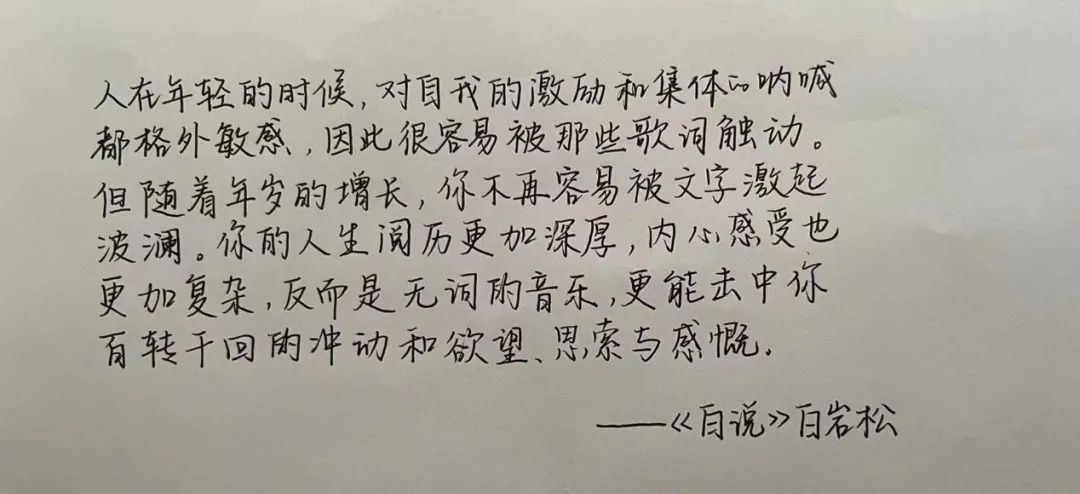 人在年轻的时候，对自我的激励和集体的呐喊
都格外敏感，因此很容易被那些歌词触动。
但随着年岁的增长，你不再容易被文字激起
波澜。你的人生阅历更加深厚，内心感受也
更加复杂，反而是无词的音乐，更能击中你
百转千回的冲动和欲望、思索与感慨。
——《白说》白岩松